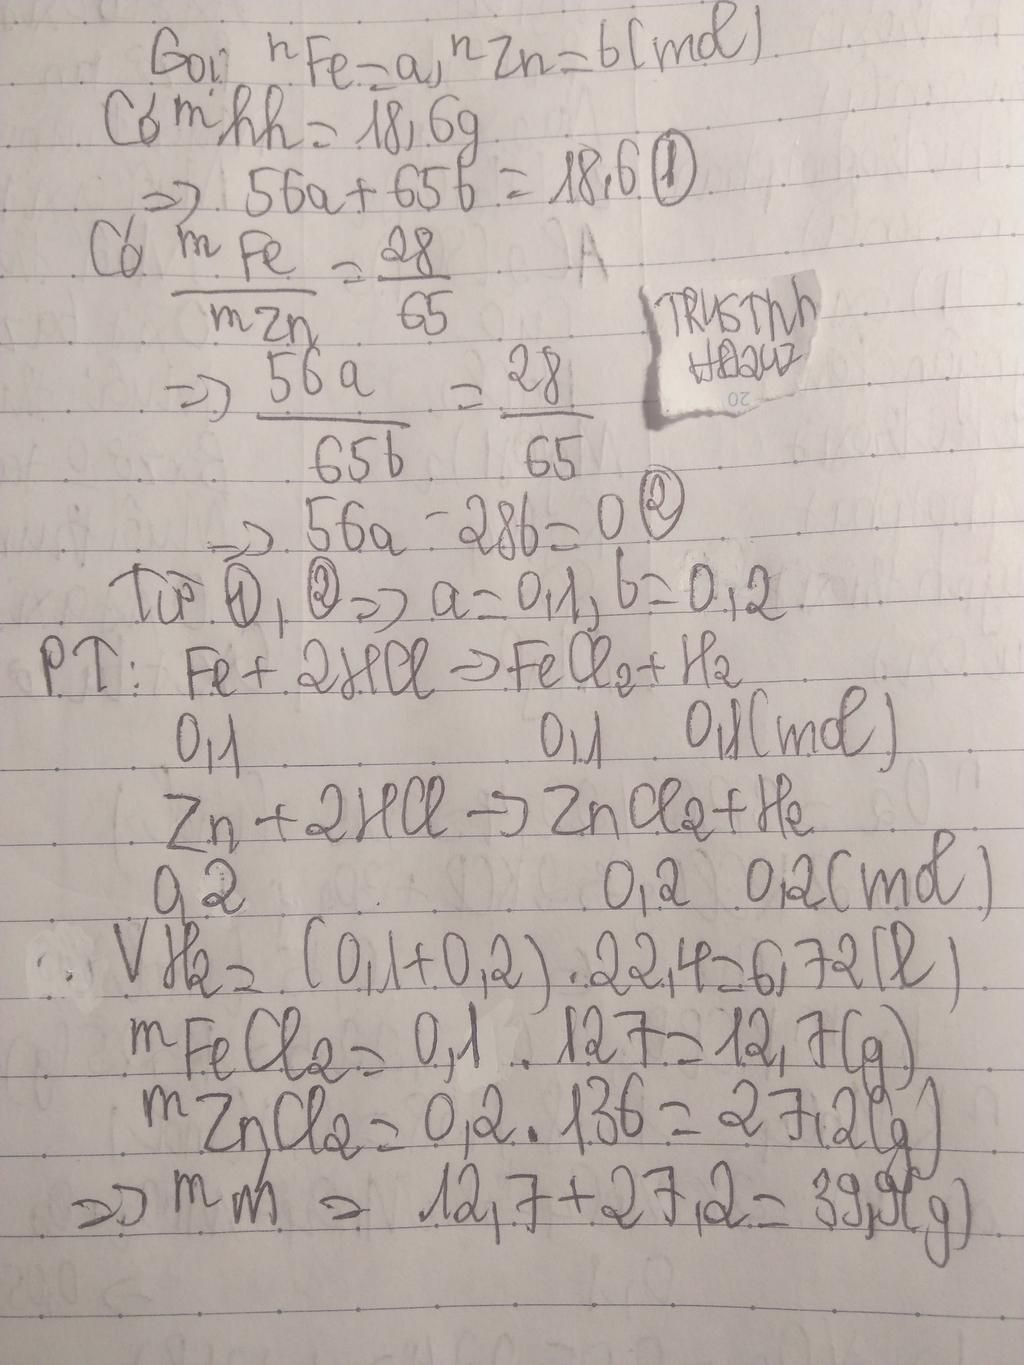 Gọi nFe=a, nZn=b(mol)
Có mhh=18,6g
=> 56a+65b=18,6 ①
Có mFe/mZn=28/65
=> 56a/65b=28/65
=> 56a-28b=0 ②
Từ ①, ② => a=0,1, b=0,2
PT: Fe+2HCl->FeCl2+H2
0,1 0,1 0,1(mol)
Zn+2HCl->ZnCl2+H2
0,2 0,2 0,2(mol)
VH2=(0,1+0,2).22,4=6,72(l)
mFeCl2=0,1.127=12,7(g)
mZnCl2=0,2.136=27,2(g)
=> mm=12,7+27,2=39,9(g)
20